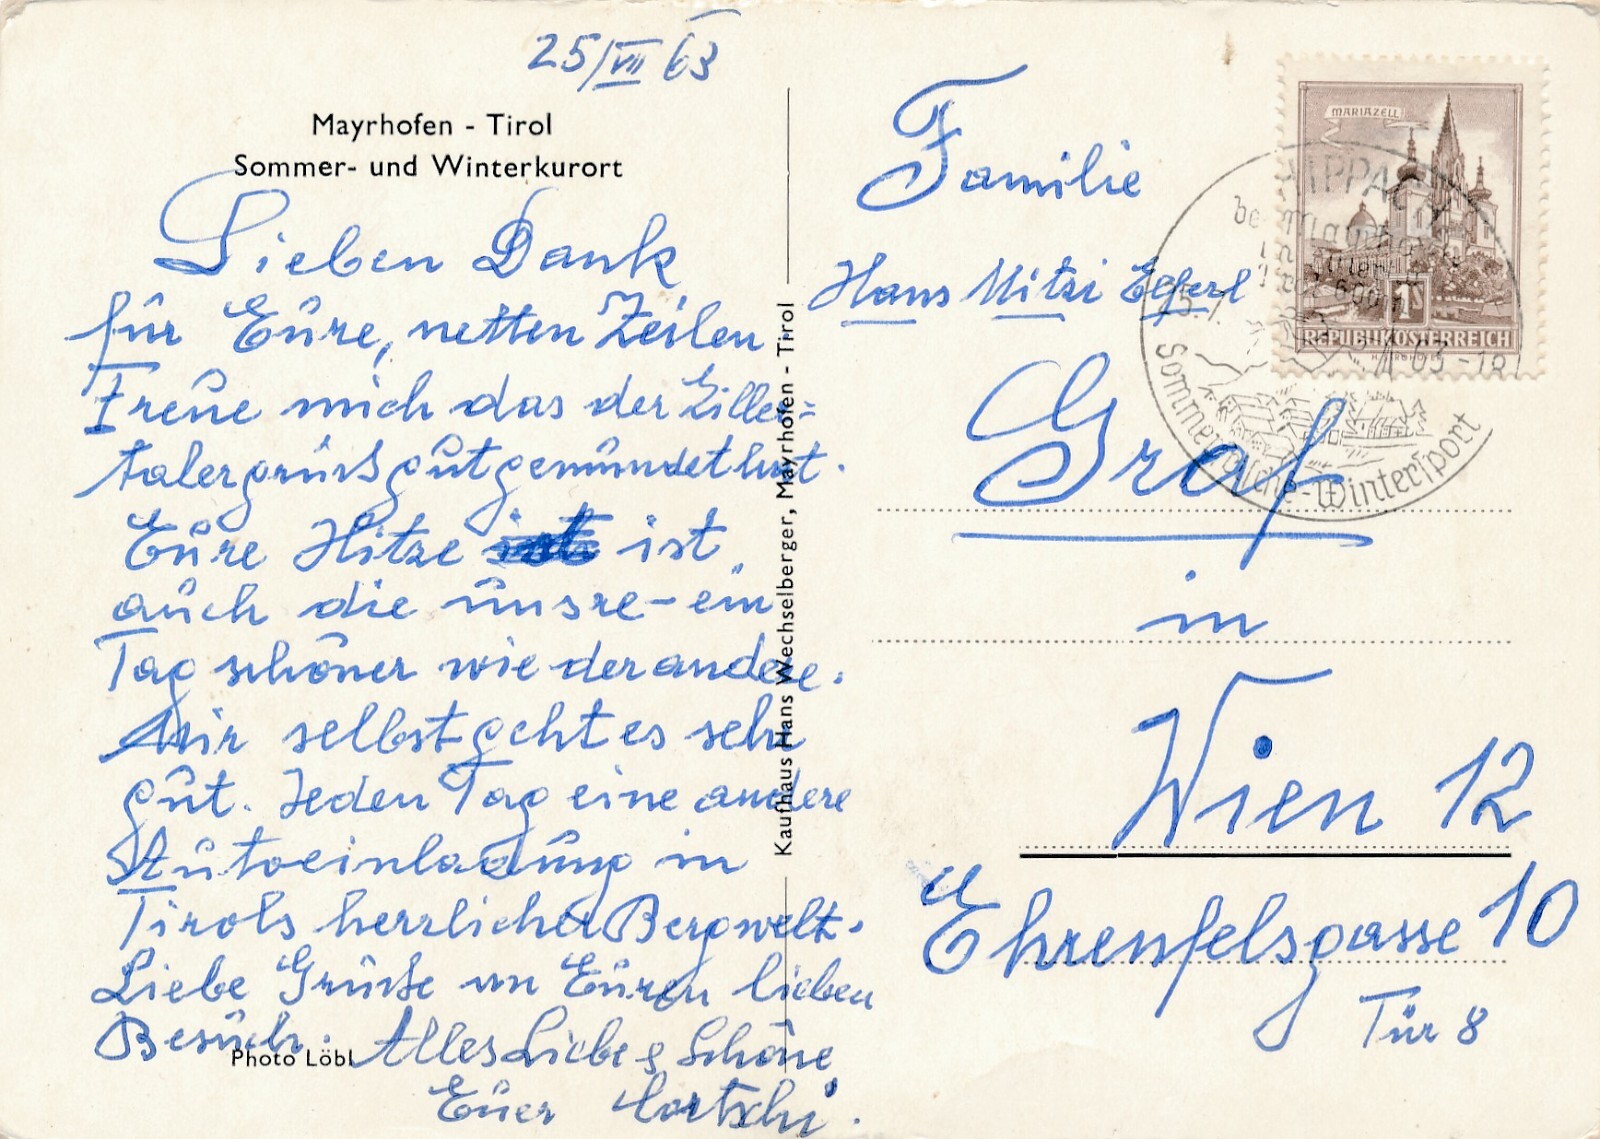 25/VII 63
Mayrhofen - Tirol
Sommer- und Winterkurort
Lieben Dank
für Eure, netten Zeilen.
Freue mich das der Ziller=
talergruß gut gemundet hat.
Eure Hitze ist
auch die unsre - ein
Tag schöner wie der andere.
Mir selbst geht es sehr
gut. Jeden Tag eine andere
Autoeinladung in
Tirols herrlicher Bergwelt.
Liebe Grüße an Euren lieben
Besuch. Alles Liebe & Schöne
Euer
Photo Löbl
Kaufhaus Hans Wechselberger, Mayrhofen - Tirol
Familie
Hans Mitzi
Graf
in
Wien 12
Ehrenfelsgasse 10
Tür 8
MARIAZELL
1S
REPUBLIK ÖSTERREICH
HIPPACH
Sommerfrische-Wintersport